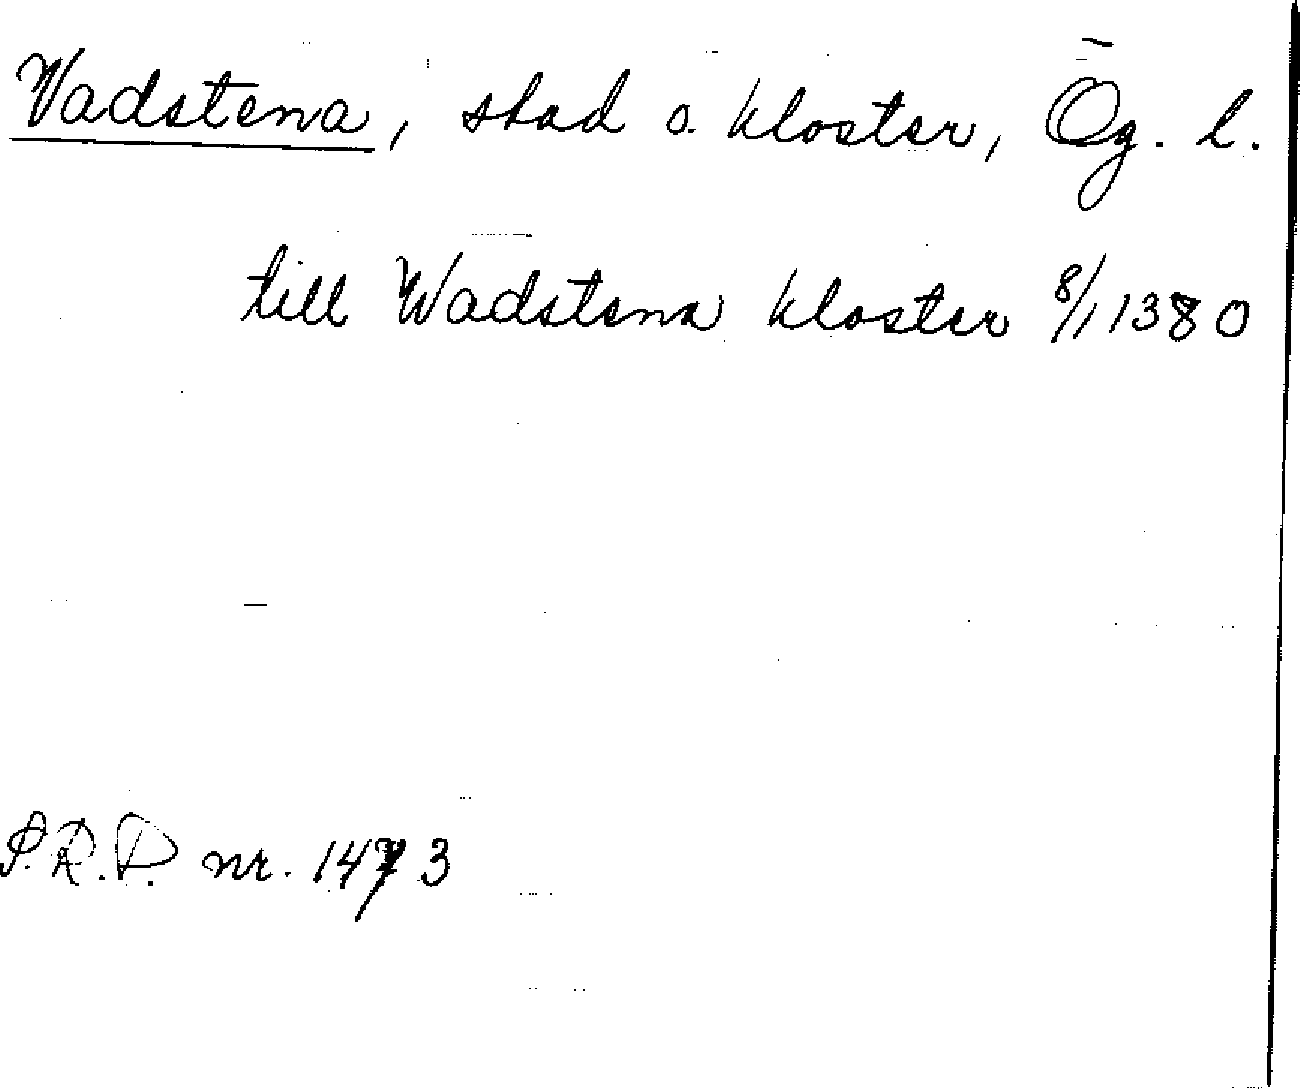 Vadstena, stad o. kloster, Ög. l.
till Wadstena kloster 8/1 1380
S.R.P. nr. 1473